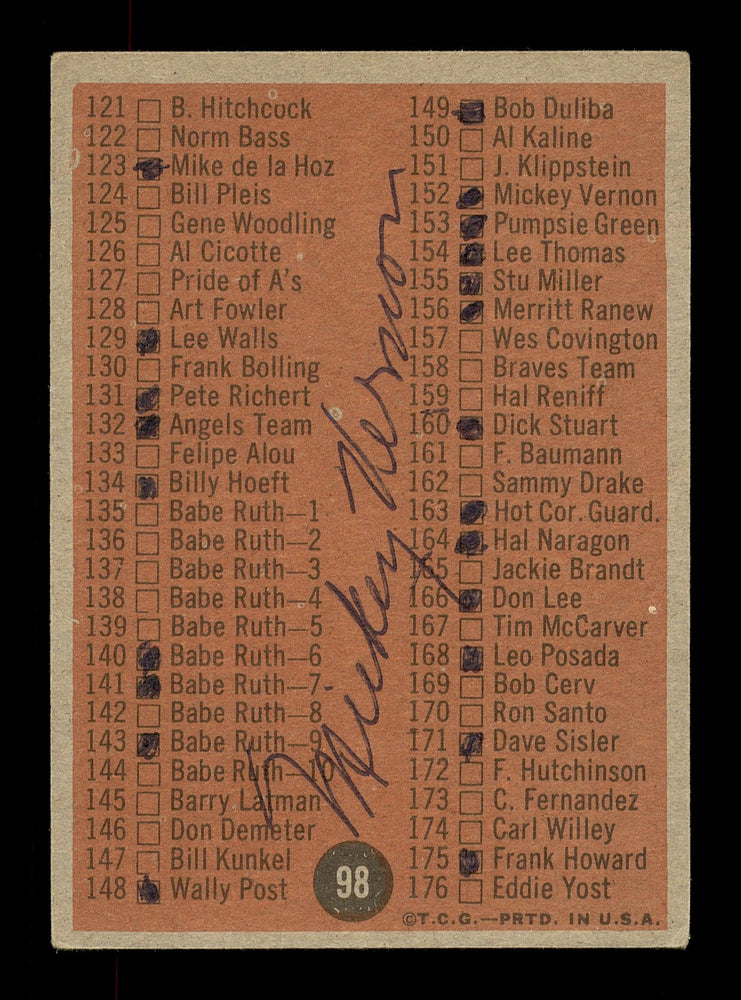 121 B. Hitchcock
122 Norm Bass
123 Mike de la Hoz
124 Bill Pleis
125 Gene Woodling
126 Al Cicotte
127 Pride of A's
128 Art Fowler
129 Lee Walls
130 Frank Bolling
131 Pete Richert
132 Angels Team
133 Felipe Alou
134 Billy Hoeft
135 Babe Ruth—1
136 Babe Ruth—2
137 Babe Ruth—3
138 Babe Ruth—4
139 Babe Ruth—5
140 Babe Ruth—6
141 Babe Ruth—7
142 Babe Ruth—8
143 Babe Ruth—9
144 Babe Ruth—10
145 Barry Latman
146 Don Demeter
147 Bill Kunkel
148 Wally Post
149 Bob Duliba
150 Al Kaline
151 J. Klippstein
152 Mickey Vernon
153 Pumpsie Green
154 Lee Thomas
155 Stu Miller
156 Merritt Ranew
157 Wes Covington
158 Braves Team
159 Hal Reniff
160 Dick Stuart
161 F. Baumann
162 Sammy Drake
163 Hot Cor. Guard.
164 Hal Naragon
165 Jackie Brandt
166 Don Lee
167 Tim McCarver
168 Leo Posada
169 Bob Cerv
170 Ron Santo
171 Dave Sisler
172 F. Hutchinson
173 C. Fernandez
174 Carl Willey
175 Frank Howard
176 Eddie Yost
Mickey Vernon
98
©T.C.G.—PRTD. IN U.S.A.